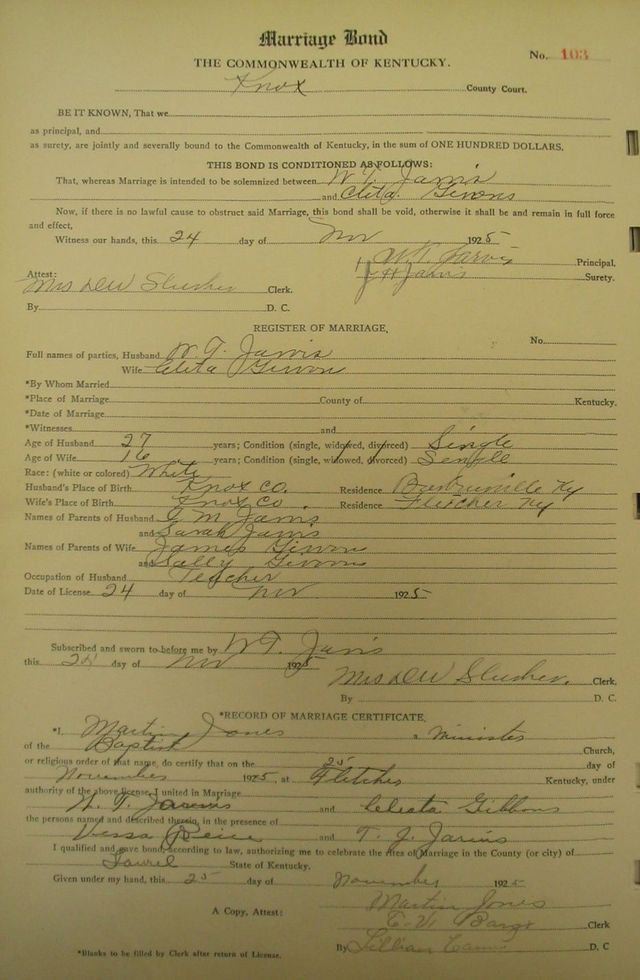 Marriage Bond
THE COMMONWEALTH OF KENTUCKY.
No. 103
Knox County Court.
BE IT KNOWN, That we
as principal, and
as surety, are jointly and severally bound to the Commonwealth of Kentucky, in the sum of ONE HUNDRED DOLLARS.
THIS BOND IS CONDITIONED AS FOLLOWS:
That, whereas Marriage is intended to be solemnized between W T. Jarvis
and Cleta Givens
Now, if there is no lawful cause to obstruct said Marriage, this bond shall be void, otherwise it shall be and remain in full force
and effect,
Witness our hands, this 24 day of Nov 1925
W T Jarvis Principal,
Attest: J H Jarvis Surety.
Mrs D W Slusher Clerk.
By D. C.
REGISTER OF MARRIAGE.
No.
Full names of parties, Husband W. T. Jarvis
Wife Cleta Givens
*By Whom Married
*Place of Marriage County of Kentucky.
*Date of Marriage
*Witnesses and
Age of Husband 27 years; Condition (single, widowed, divorced) Single
Age of Wife 16 years; Condition (single, widowed, divorced) Single
Race: (white or colored) White
Husband's Place of Birth Knox Co. Residence Ky
Wife's Place of Birth Knox Co. Residence Fletcher Ky
Names of Parents of Husband G. M. Jarvis
and Sarah Jarvis
Names of Parents of Wife James Givens
and Sally Givens
Occupation of Husband Teacher
Date of License 24 day of Nov 1925
Subscribed and sworn to before me by W T. Jarvis
this 24 day of Nov 1925
Mrs D W Slusher. Clerk.
By D. C.
*RECORD OF MARRIAGE CERTIFICATE.
*I Martin Jones a Minister
of the Baptist Church,
or religious order of that name, do certify that on the 25 day of
November 1925, at Fletcher Kentucky, under
authority of the above license, I united in Marriage
W. T. Jarvis and Celesta Gibbons
the persons named and described therein, in the presence of
and T. J. Jarvis
I qualified and gave bond, according to law, authorizing me to celebrate the rites of Marriage in the County (or city) of
Laurel State of Kentucky.
Given under my hand, this 25 day of November 1925
Martin Jones
A Copy, Attest: Clerk
By Lillian D. C
*Blanks to be filled by Clerk after return of License.